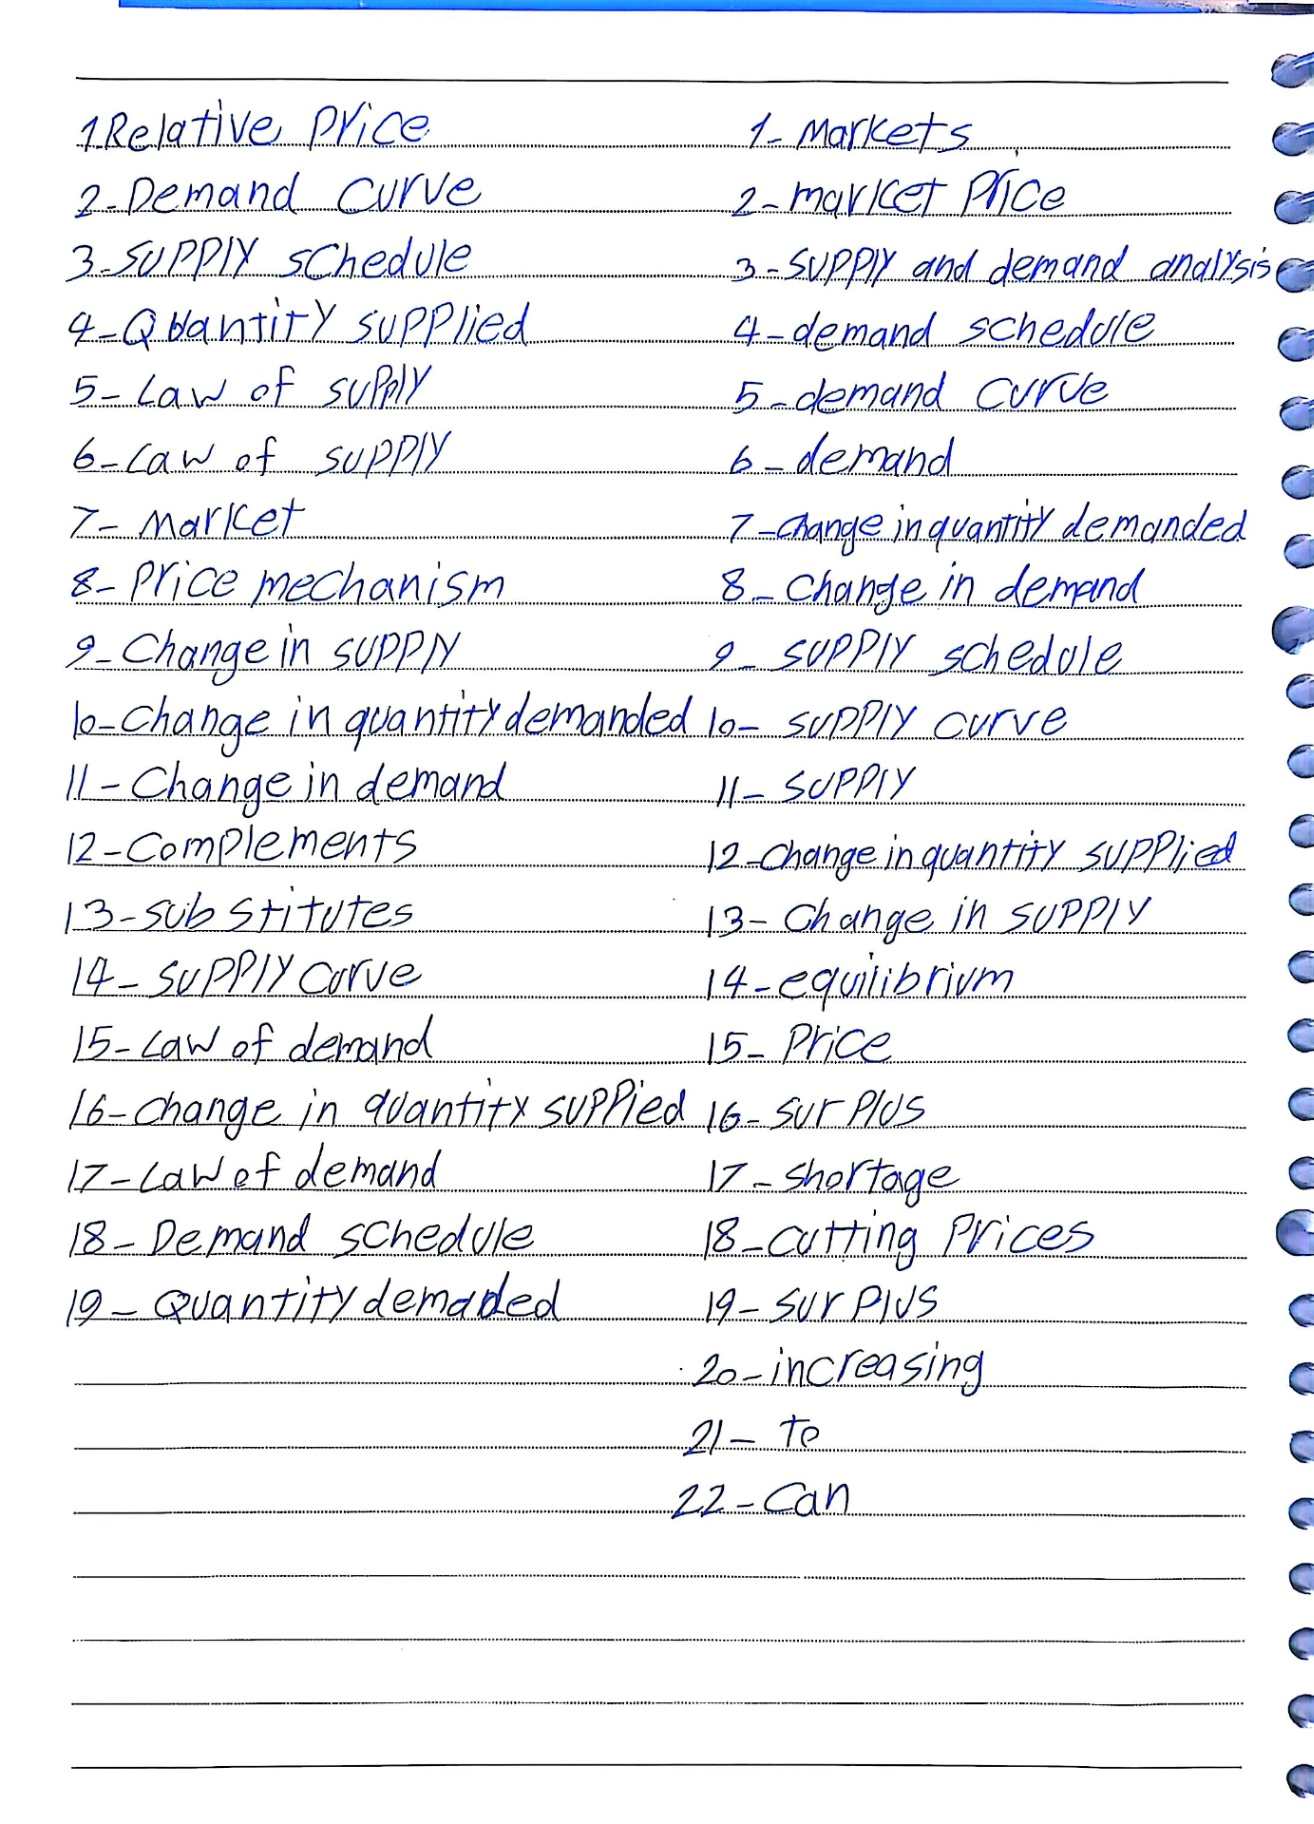 1 Relative Price
2-Demand Curve
3-Supply schedule
4-Quantity supplied
5-Law of supply
6-Law of supply
7-Market
8-Price mechanism
9-Change in supply
10-Change in quantity demanded
11-Change in demand
12-Complements
13-Substitutes
14-Supply Curve
15-Law of demand
16-Change in quantity suppied
17-Law of demand
18-Demand schedule
19-Quantity demaded
1-Markets
2-market Price
3-supply and demand analysis
4-demand schedule
5-demand curve
6-demand
7-change in quantity demanded
8-Change in demand
9-supply schedule
10-supply curve
11-supply
12-change in quantity supplied
13-Change in supply
14-equilibrium
15-Price
16-surplus
17-shortage
18-cutting Prices
19-surplus
20-increasing
21-to
22-Can